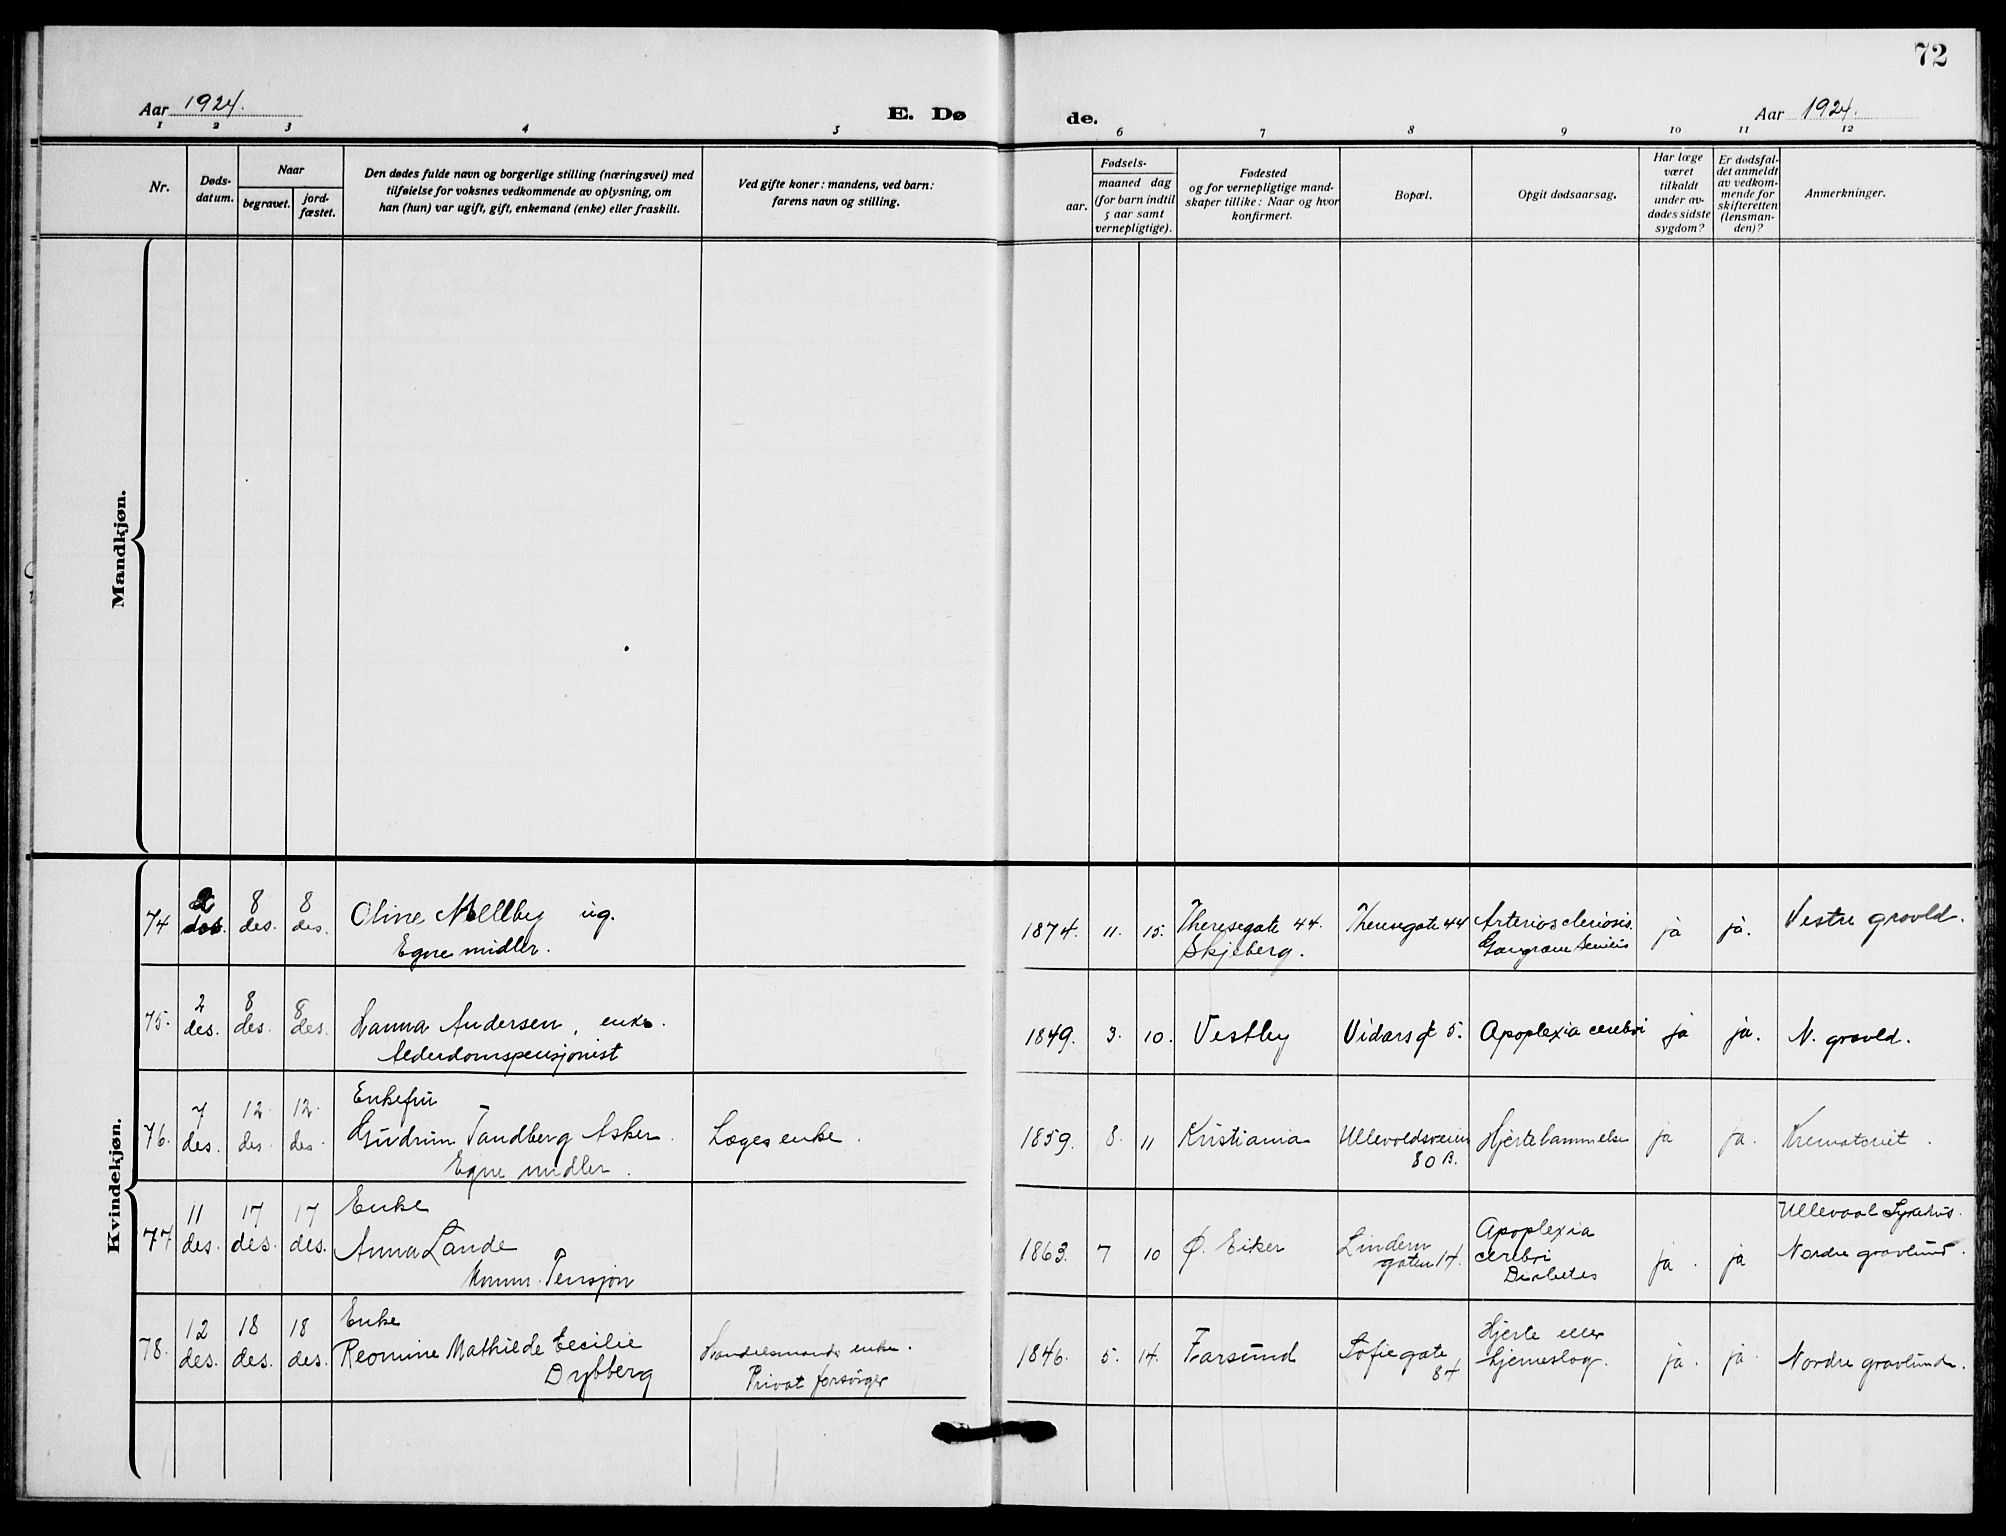 72
Aar 1924.
E. Dø
de.
Aar 1924.
1 2 3 4 5 6 7 8 9 10 11 12
Nr.
Døds-
datum.
Naar
begravet.
jord-
fæstet.
Den dødes fulde navn og borgerlige stilling (næringsvei) med
tilføielse for voksnes vedkommende av oplysning, om
han (hun) var ugift, gift, enkemand (enke) eller fraskilt.
Ved gifte koner: mandens, ved barn:
farens navn og stilling.
Fødsels-
aar.
maaned dag
(for barn indtil
5 aar samt
vernepligtige).
Fødested
og for vernepligtige mand-
skaper tillike: Naar og hvor
konfirmert.
Bopæl.
Opgit dødsaarsag.
Har læge
været
tilkaldt
under av-
dødes sidste
sygdom?
Er dødsfal-
det anmeldt
av vedkom-
mende for
skifteretten
(lensman-
den)?
Anmerkninger.
Mandkjøn.
Kvindekjøn.
74
2
des.
8
des.
8
des.
Oline Mellby ug.
Egne midler.
1874. 11. 15.
Theresegate 44.
Skjeberg.
Theresegate 44
Arterioscleriosis.
Gangræne senilis
ja
ja.
Vestre gravld.
75.
2
des.
8
des.
8
des.
Hanna Andersen, enke.
Alderdomspensjonist
1849. 3. 10.
Vestby
Vidarsgt 5.
Apoplexia cerebri
ja
ja.
N. gravld.
76.
7
des.
12
des.
12.
des.
Enkefru
Gudrun Tandberg Asker.
Egne midler.
Læges enke.
1859. 8. 11
Kristiania
Ullevoldsveien
80 B.
Hjertelammelse
ja
ja.
Krematoriet.
77
11
des.
17
des.
17
des.
Enke
Anna Lande
Komm. Pensjon
1863. 7 10
Ø. Eiker
Lindern
gaten 14.
Apoplexia
cerebri
Diabetes
ja.
ja
Ullevaal Sykehus.
Nordre gravlund.
78.
12
des.
18
des.
18
des.
Enke
Reomine Mathilde Cecilie
Dybberg
Handelsmands enke.
Privat forsörger
1846. 5. 14.
Farsund
Sofiegate
84
Hjerte eller
hjerneslag.
ja.
ja
Nordre gravlund.